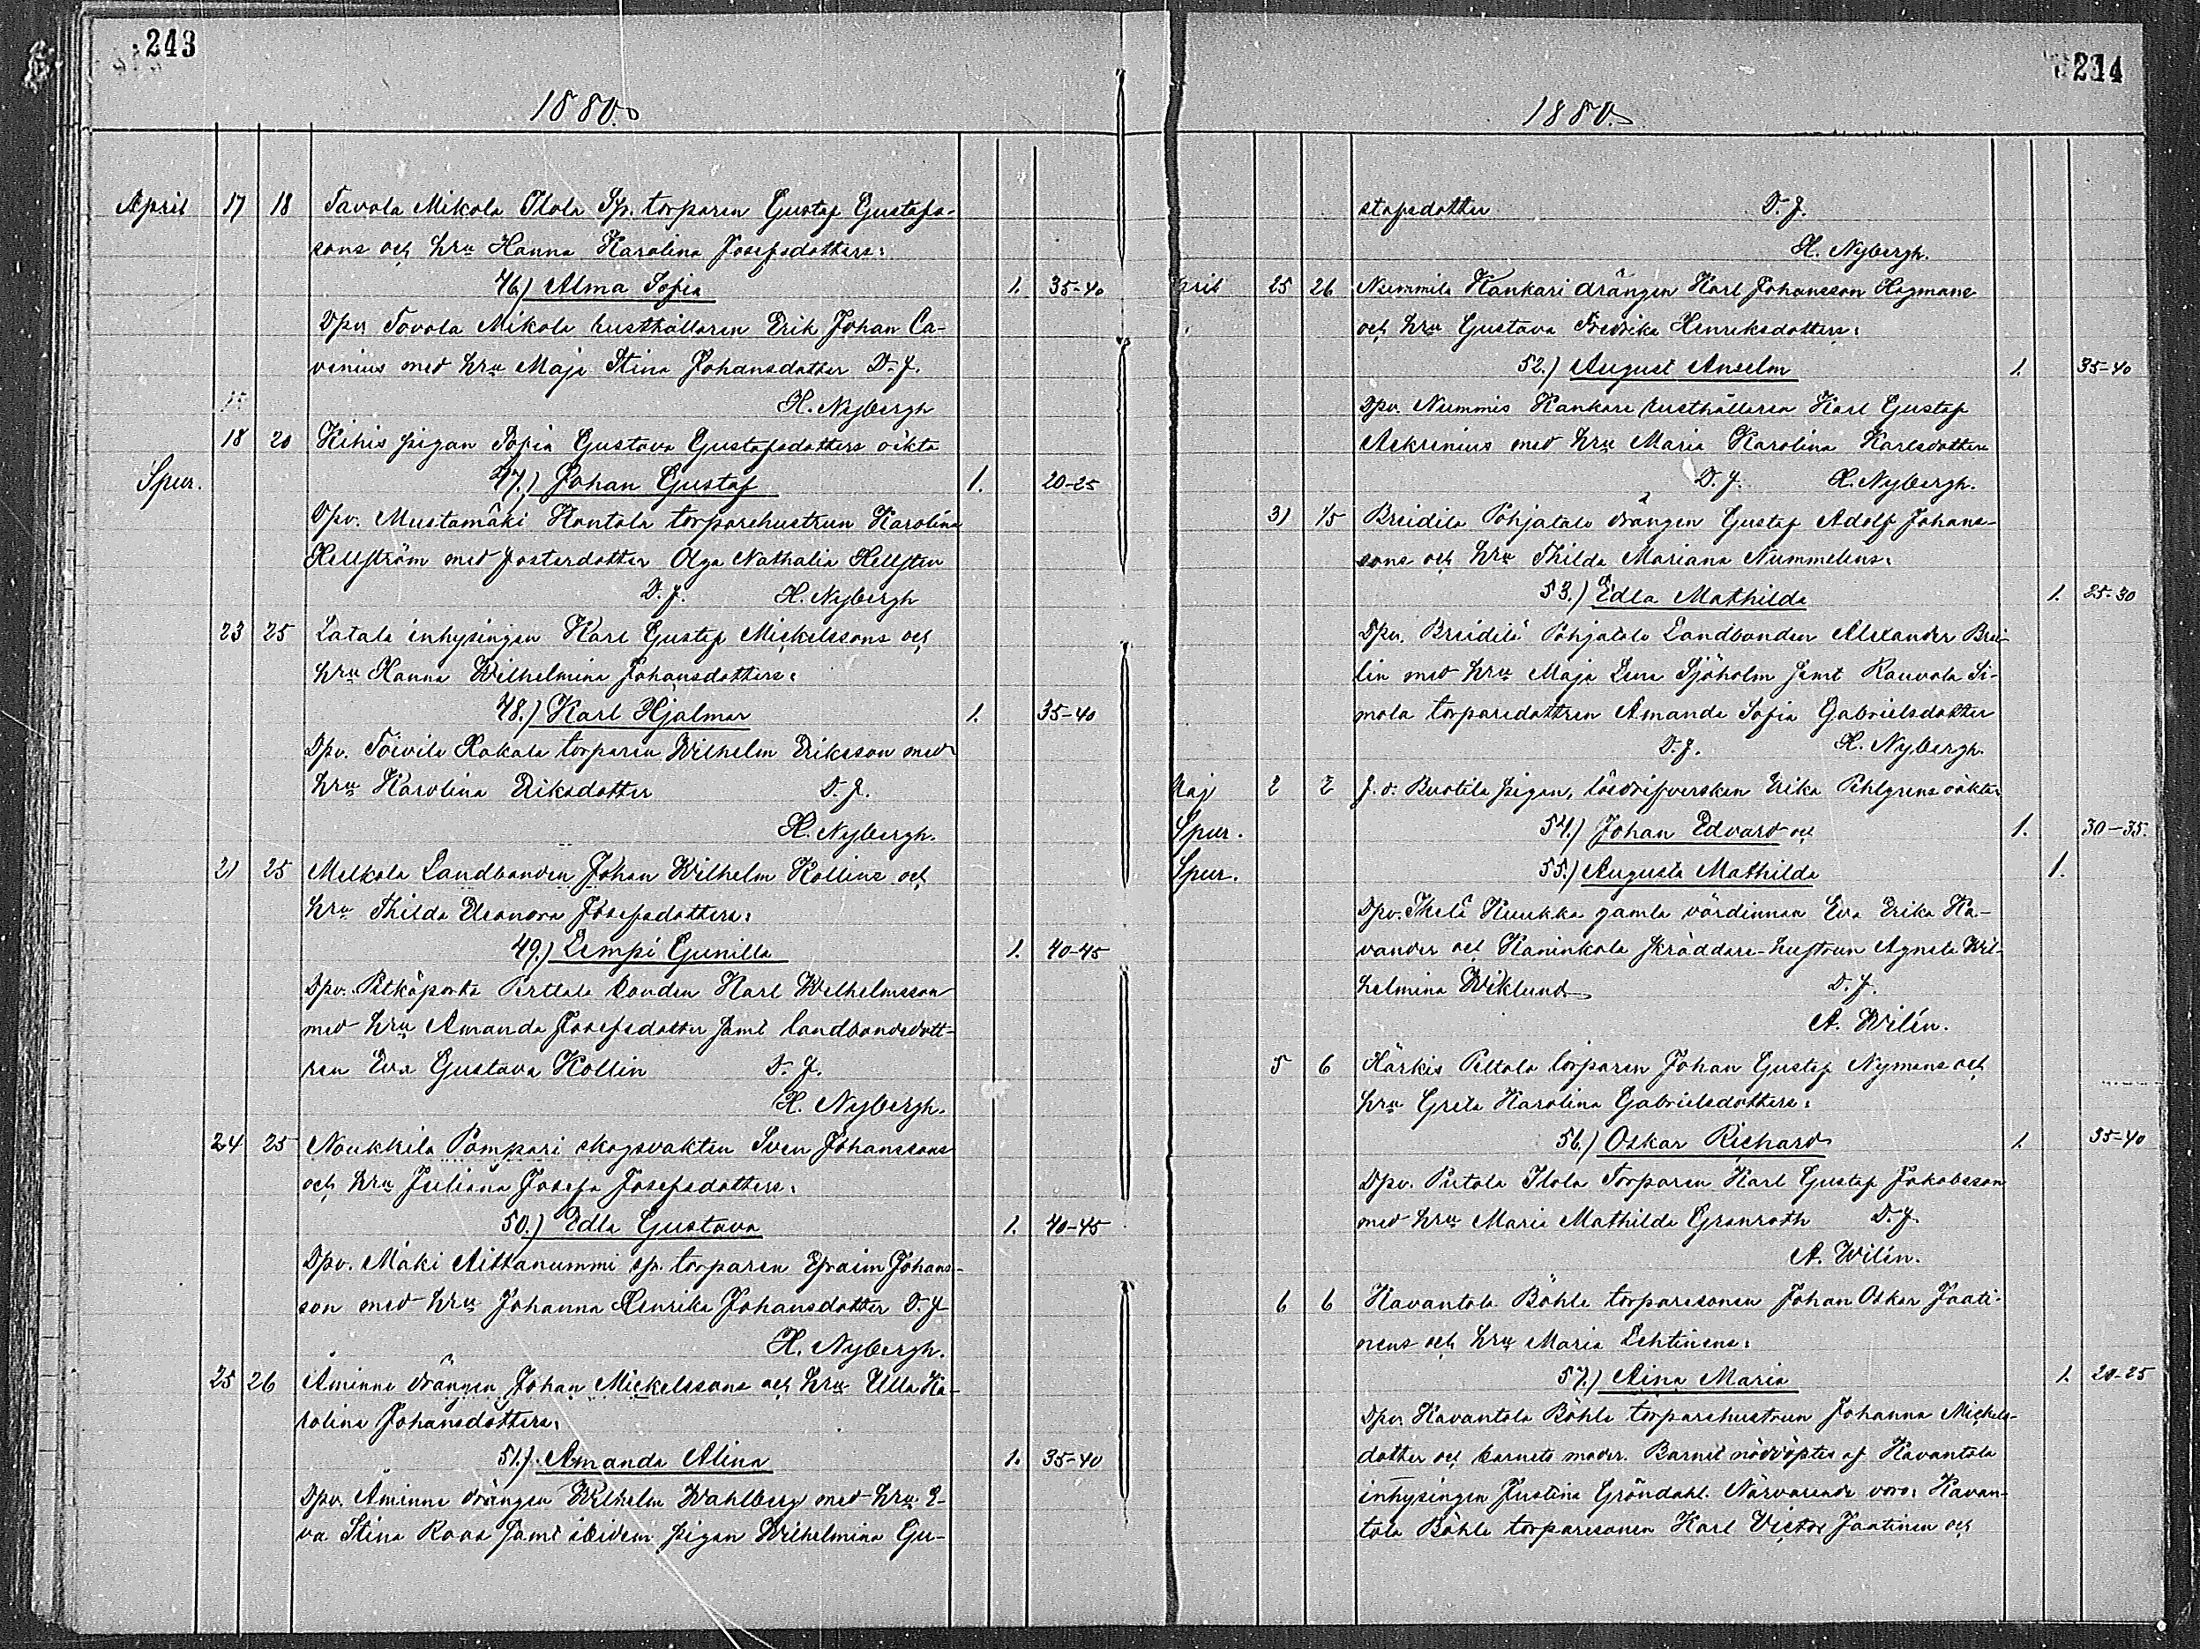 243
1880.
April 17 18 Tavola Mikola Ilola Sp. torparen Gustaf Gustafs-
sons och hru Hanna Karolina Josefsdotters:
46.) Alma Sofia 1. 35-40
Dpv. Tovola Mikola husthållaren Erik Johan Ca-
venius med hru Maja Stina Johansdotter D. J.
H. Nybergh
18 20 Kihis pigan Sofia Gustava Gustafsdotters oäkta
Spur. 47.) Johan Gustaf 1. 20-25
Dpv. Mustamäki Kantola torparehustrun Karolina
Hellström med fosterdotter Olga Nathalia Hellsten
D. J. H. Nybergh
23 25 Latala inhysingen Karl Gustaf Mickelssons och
hru Hanna Wilhelmina Johansdotters:
48.) Karl Hjalmar 1. 35-40
Dpv. Toivila Kokala torparen Wilhelm Eriksson med
hru Karolina Eriksdotter D. J.
H. Nybergh.
21 25 Melkola Landbonden Johan Wilhelm Kollins och
hru Thilda Eleonora Josefsdotters:
49.) Lempi Gunilla 1. 40-45
Dpv. Pitkäporta Perttala bonden Karl Wilhelmsson
med hru Amanda Josefsdotter samt landbondedott-
ren Eva Gustava Kollin D. J.
H. Nybergh.
24 25 Noukkila Pompari skogsvakten Sven Johanssons
och hru Juliana Josefa Josefsdotters:
50.) Edla Gustava 1. 40-45
Dpv. Mäki Aittanummi sp. torparen Efraim Johans-
son med hru Johanna Henrika Johansdotter D. J.
H. Nybergh.
25 26 Åminne drängen Johan Mickelssons och hru Ulla Ka-
rolina Johansdotters:
51.) Amanda Alina 1. 35-40
Dpv. Åminne drängen Wilhelm Wahlberg med hru E-
va Stina Roos samt ibidem pigan Wilhelmina Gu-
214
1880.
stafsdotter D. J.
H. Nybergh.
April 25 26 Nummila Kankari drängen Karl Johansson Hagmans
och hru Gustava Fredrika Henriksdotters:
52.) August Anselm 1. 35-40
Dpv. Nummis Kankare husthållaren Karl Gustaf
Askrenius med hru Maria Karolina Karlsdotter
D. J. H. Nybergh.
31 1/5 Breidila Pohjatalo drängen Gustaf Adolf Johans-
sons och hru Thilda Mariana Nummelins:
53.) Edla Mathilda 1. 25-30
Dpv. Breidilä Pohjatalo Landbonden Alexander Brei-
lin med hru Maja Lena Sjöholm samt Rauvola Si-
mola torparedottren Amanda Sofia Gabrielsdotter
D. J. H. Nybergh.
Maj 2 2 J. o. Ruotila pigan, lösdrifverskan Erika Pihlgrens oäkta:
Spur. 54.) Johan Edvard och 1. 30-35.
Spur. 55.) Augusta Mathilda 1.
Dpv. Ihelä Kuukka gamla värdinnan Eva Erika Ka-
vander och Kaninkola skräddare-hustrun Agneta Wil-
helmina Wiklund D. J.
A. Wilén.
5 6 Härkis Peltola torparen Johan Gustaf Nymans och
hru Greta Karolina Gabrielsdotters:
56.) Oskar Richard 1. 35-40
Dpv. Pirtola Ilola Torparen Karl Gustaf Jakobsson
med hru Maria Mathilda Granroth D. J.
A. Wilén.
6 6 Kavantola Böhle torparesonen Johan Oskar Jaati-
nens och hru Maria Lehtinens:
57.) Aina Maria 1. 20-25
Dpv. Kavantola Böhle torparehustrun Johanna Mickels-
dotter och barnets moder. Barnet nöddöptes af Kavantola
inhysingen Justina Gröndahl. Närvarande voro: Kavan-
tola Böhle torparesonen Karl Victor Jaatinen och